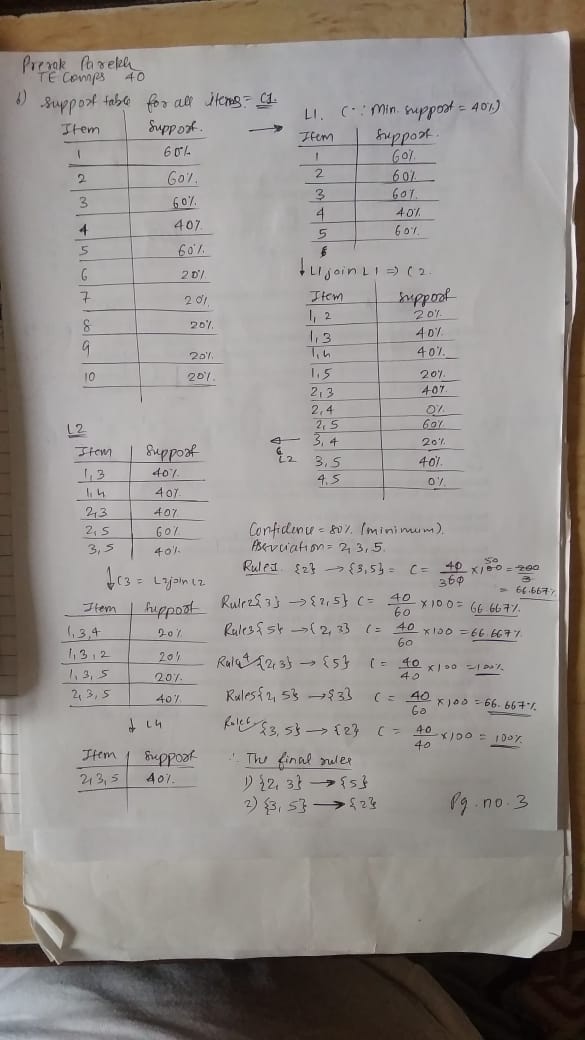 Prerak Parekh
TE Comps 40
b) Support table for all items = C1.
Item Support.
1 60%
2 60%.
3 60%.
4 40%
5 60%.
6 20%
7 20%
8 20%
9 20%
10 20%.
L1. (∵ Min. support = 40%)
Item Support.
1 60%.
2 60%
3 60%.
4 40%
5 60%.
6
↓ L1 join L1 ⇒ C2.
Item Support
1, 2 20%
1, 3 40%
1, 4 40%.
1, 5 20%
2, 3 40%
2, 4 0%
2, 5 60%
3, 4 20%
3, 5 40%
4, 5 0%
← L2
L2
Item Support
1, 3 40%
1, 4 40%
2, 3 40%
2, 5 60%
3, 5 40%
↓ C3 = L2 join L2
Item Support
1, 3, 4 20%
1, 3, 2 20%
1, 3, 5 20%
2, 3, 5 40%
↓ L4
Item Support
2, 3, 5 40%.
Confidence = 80% (minimum).
Association = 2, 3, 5.
Rule1. {2} → {3, 5} = C = 40/360 × 100 50 = 200/3
= 66.667%
Rule2 {3} → {2, 5} C = 40/60 × 100 = 66.667%
Rule3 {5} → {2, 3} C = 40/60 × 100 = 66.667%
Rule4 {2, 3} → {5} C = 40/40 × 100 = 100%
Rule5 {2, 5} → {3} C = 40/60 × 100 = 66.667%
Rule6 {3, 5} → {2} C = 40/40 × 100 = 100%
∴ The final rules
1) {2, 3} → {5}
2) {3, 5} → {2}
Pg. no. 3